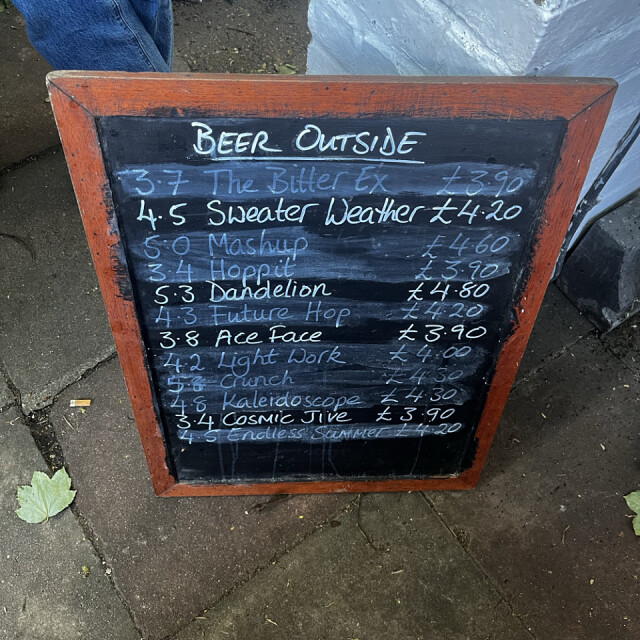 BEER OUTSIDE
3.7 The Bitter Ex £3.90
4.5 Sweater Weather £4.20
5.0 Mashup £4.60
3.4 Hoppit £3.90
5.3 Dandelion £4.80
4.3 Future Hop £4.20
3.8 Ace Face £3.90
4.2 Light Work £4.00
5.8 Crunch £4.30
4.8 Kaleidoscope £4.30
3.4 Cosmic Jive £3.90
4.5 Endless Summer £4.20